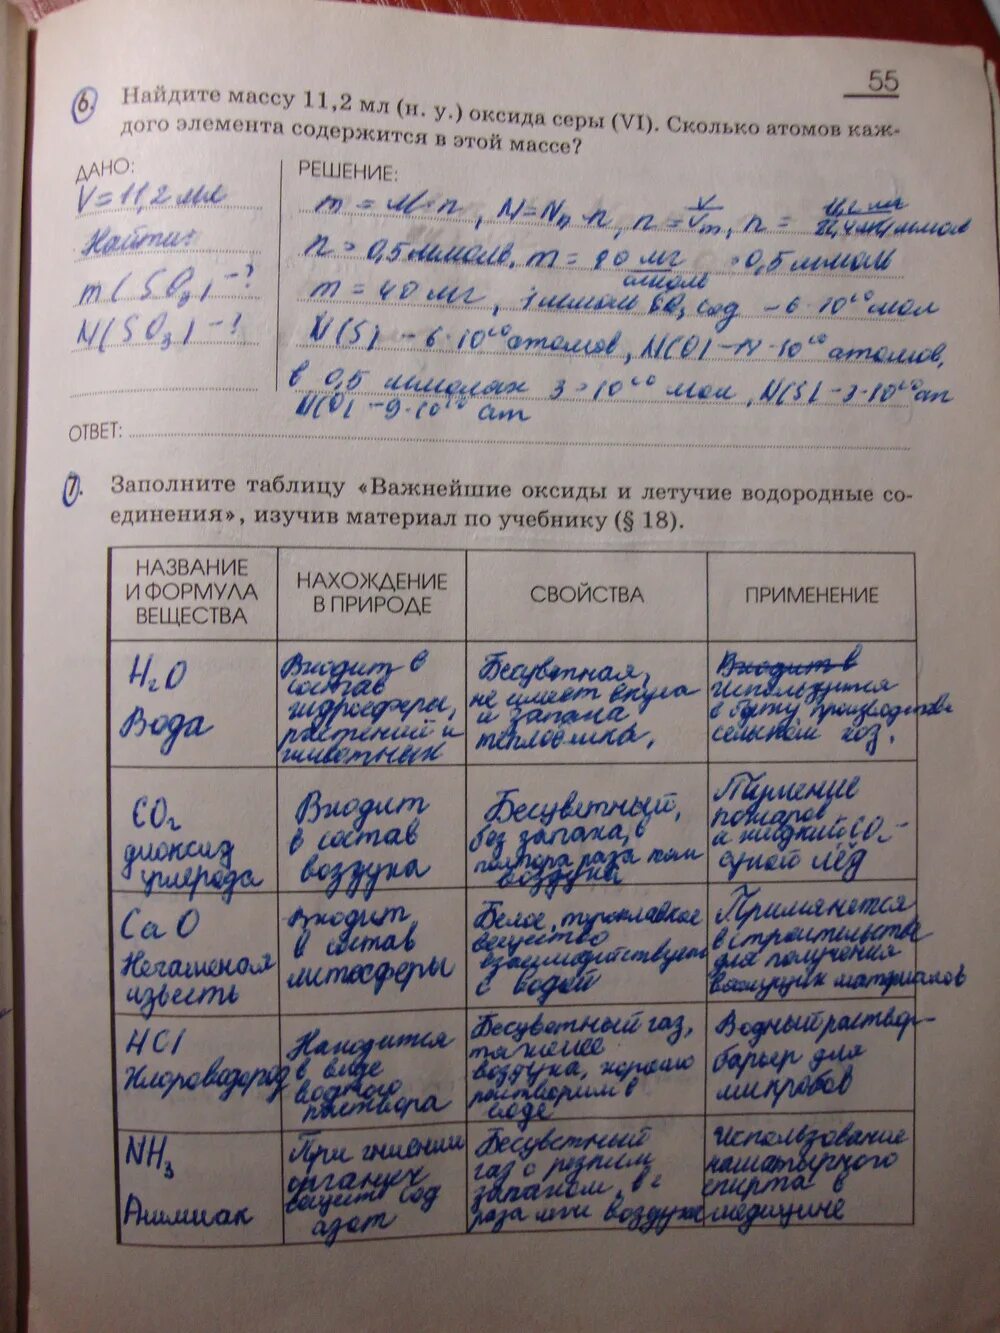 55
6. Найдите массу 11,2 мл (н. у.) оксида серы (VI). Сколько атомов каж-
дого элемента содержится в этой массе?
ДАНО:
РЕШЕНИЕ:
V = 11,2 мл
Найти:
m(SO₃) - ?
N(SO₃) - ?
m = M · n, N = Nₐ · n, n = V/Vₘ, n =
n = 0,5 ммоль, m = 80 мг · 0,5 ммоль
ммоль
m = 40 мг, 1 ммоль SO₃ сод – 6 · 10²⁰ мол
N(S) – 6 · 10²⁰ атомов, N(O) – 18 · 10²⁰ атомов,
в 0,5 ммолях 3 · 10²⁰ мол, N(S) – 3 · 10²⁰ ат
N(O) – 9 · 10²⁰ ат
ОТВЕТ:
7. Заполните таблицу «Важнейшие оксиды и летучие водородные со-
единения», изучив материал по учебнику (§ 18).
НАЗВАНИЕ
И ФОРМУЛА
ВЕЩЕСТВА
НАХОЖДЕНИЕ
В ПРИРОДЕ
СВОЙСТВА
ПРИМЕНЕНИЕ
H₂O
Вода
Входит в
состав
гидросферы,
растений и
животных
Бесцветная,
не имеет вкуса
и запаха
Входит в
используется
в быту, производстве
сельском хоз.
CO₂
диоксид
углерода
Входит
в состав
воздуха
Бесцветный,
без запаха, в
полтора раза
воздуха
Тушение
пожаров
и жидкий CO₂ –
сухой лёд
CaO
Негашеная
известь
Входит
в состав
литосферы
Белое, тугоплавкое
вещество
взаимодействует
с водой
Применяется
в строительстве
для получения
вяжущих материалов
HCl
Хлороводород
Находится
в виде
водного
раствора
Бесцветный газ,
тяжелее
воздуха, хорошо
растворим в
воде
Водный раствор –
барьер для
микробов
NH₃
Аммиак
При гниении
органич
сод
азот
Бесцветный
газ с резким
запахом, в 2
раза легч воздуха
Использование
нашатырного
спирта в
медицине